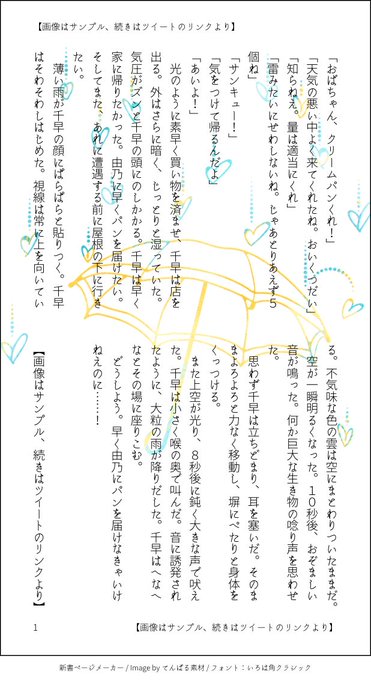 【画像はサンプル、続きはツイートのリンクより】
「おばちゃん、クリームパンくれ！」
「天気の悪い中よく来てくれたね。おいくつだい」
「知らねえ。量は適当にくれ」
「雷みたいにせわしないね。じゃあとりあえず５
個ね」
「サンキュー！」
「気をつけて帰るんだよ」
「あいよ！」
光のように素早く買い物を済ませ、千早は店を
出る。外はさらに暗く、じっとりと湿っていた。
気圧がズンと千早の頭にのしかかる。千早は早く
家に帰りたかった。由乃に早くパンを届けたい。
そしてまた、あれに遭遇する前に屋根の下に行き
たい。
薄い雨が千早の顔にぱらぱらと貼りつく。千早
はそわそわしはじめた。視線は常に上を向いてい
る。不気味な色の雲は空にまとわりついたままだ。
空が一瞬明るくなった。１０秒後、おぞましい
音が鳴った。何か巨大な生き物の唸り声を思わせ
た。
思わず千早は立ちどまり、耳を塞いだ。そのま
まよろよろと力なく移動し、塀にべたりと身体を
くっつける。
また上空が光り、８秒後に鈍く大きな声で吠え
た。千早は小さく喉の奥で叫んだ。音に誘発され
たように、大粒の雨が降りだした。千早はへなへ
なとその場に座りこむ。
どうしよう。早く由乃にパンを届けなきゃいけ
ねえのに……！
【画像はサンプル、続きはツイートのリンクより】
1
【画像はサンプル、続きはツイートのリンクより】
新書ページメーカー / Image by てんぱる素材 / フォント：いろは角クラシック